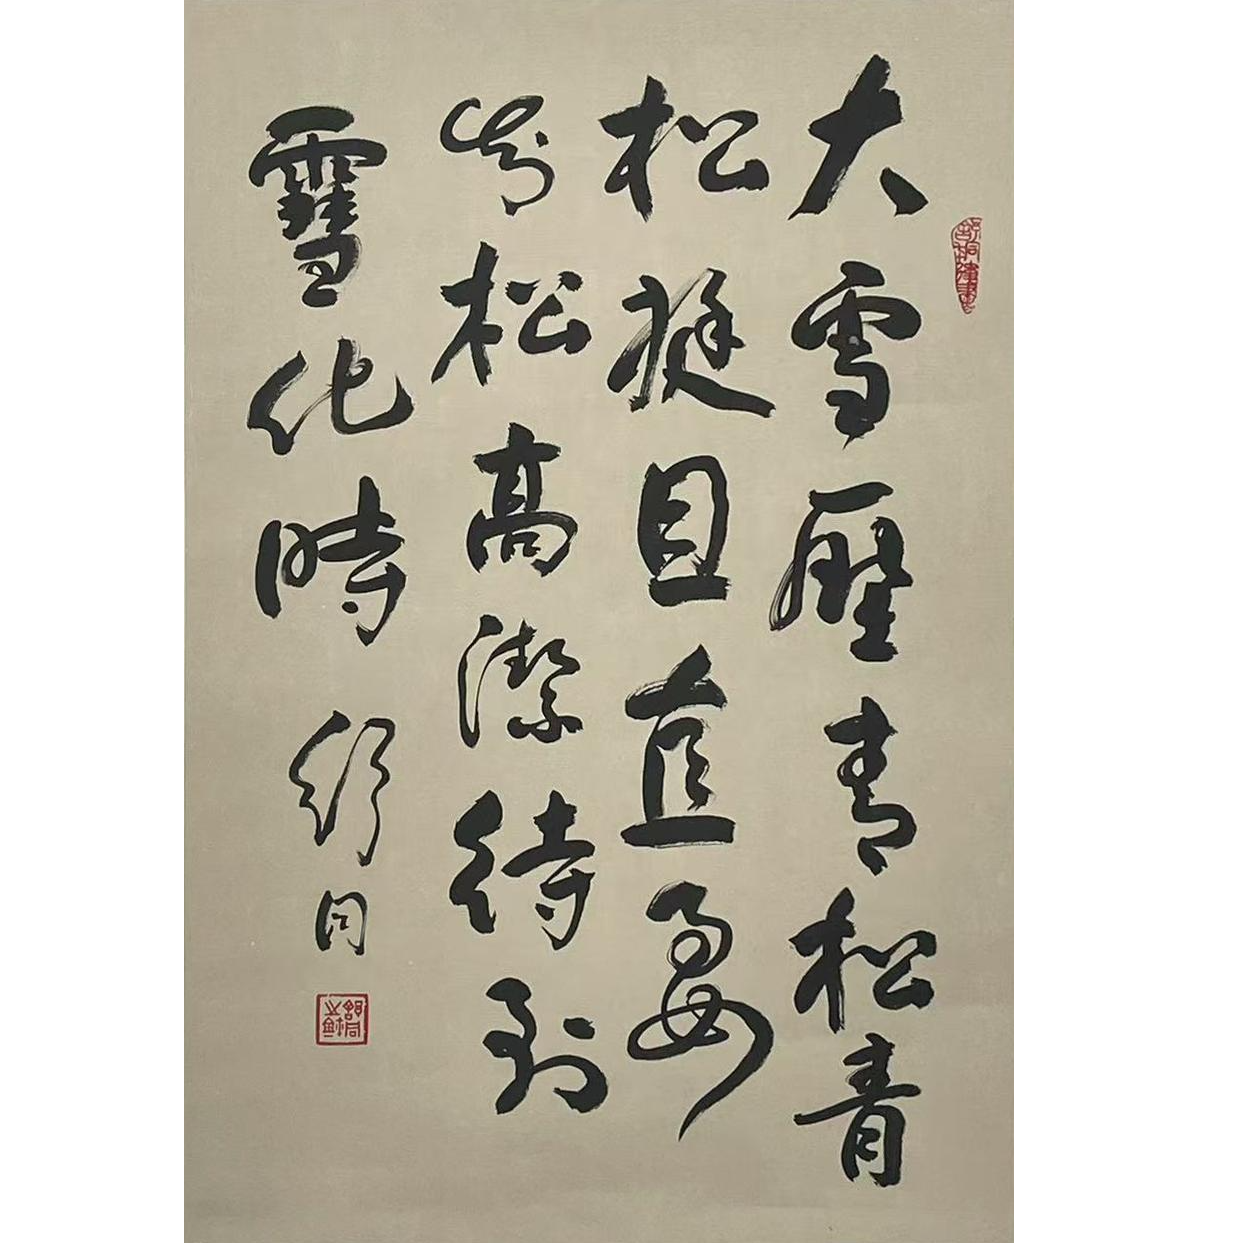 大雪壓青松青
松挺且直要
知松高潔待到
雪化時
舒同